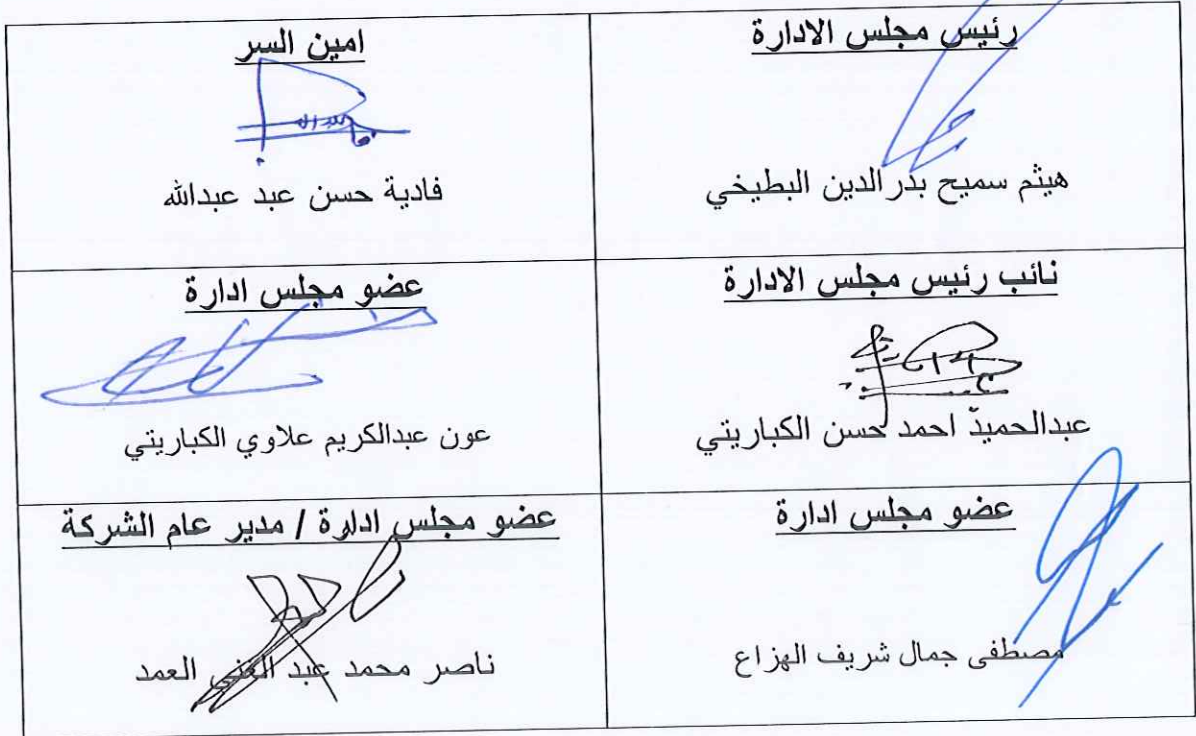 رئيس مجلس الادارة
هيثم سميح بدر الدين البطيخي
امين السر
فادية حسن عبد عبدالله
نائب رئيس مجلس الادارة
عبدالحميد احمد حسن الكباريتي
عضو مجلس ادارة
عون عبدالكريم علاوي الكباريتي
عضو مجلس ادارة
مصطفى جمال شريف الهزاع
عضو مجلس ادارة / مدير عام الشركة
ناصر محمد عبد الغني العمد